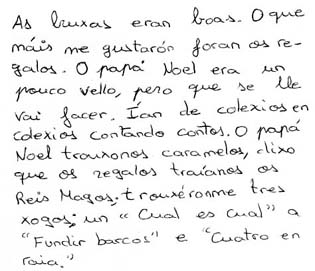 As bruxas eran boas. O que
máis me gustarón foran os re-
galos. O papá Noel era un
pouco vello, pero que se lle
vai facer. Ían de colexios en
colexios contando contos. O papá
Noel trouxonos caramelos, dixo
que os regalos traíanos os
Reis Magos. trouxéronme tres
xogos; un "Cual es Cual" a
"Fundir barcos" e "Cuatro en
raia."